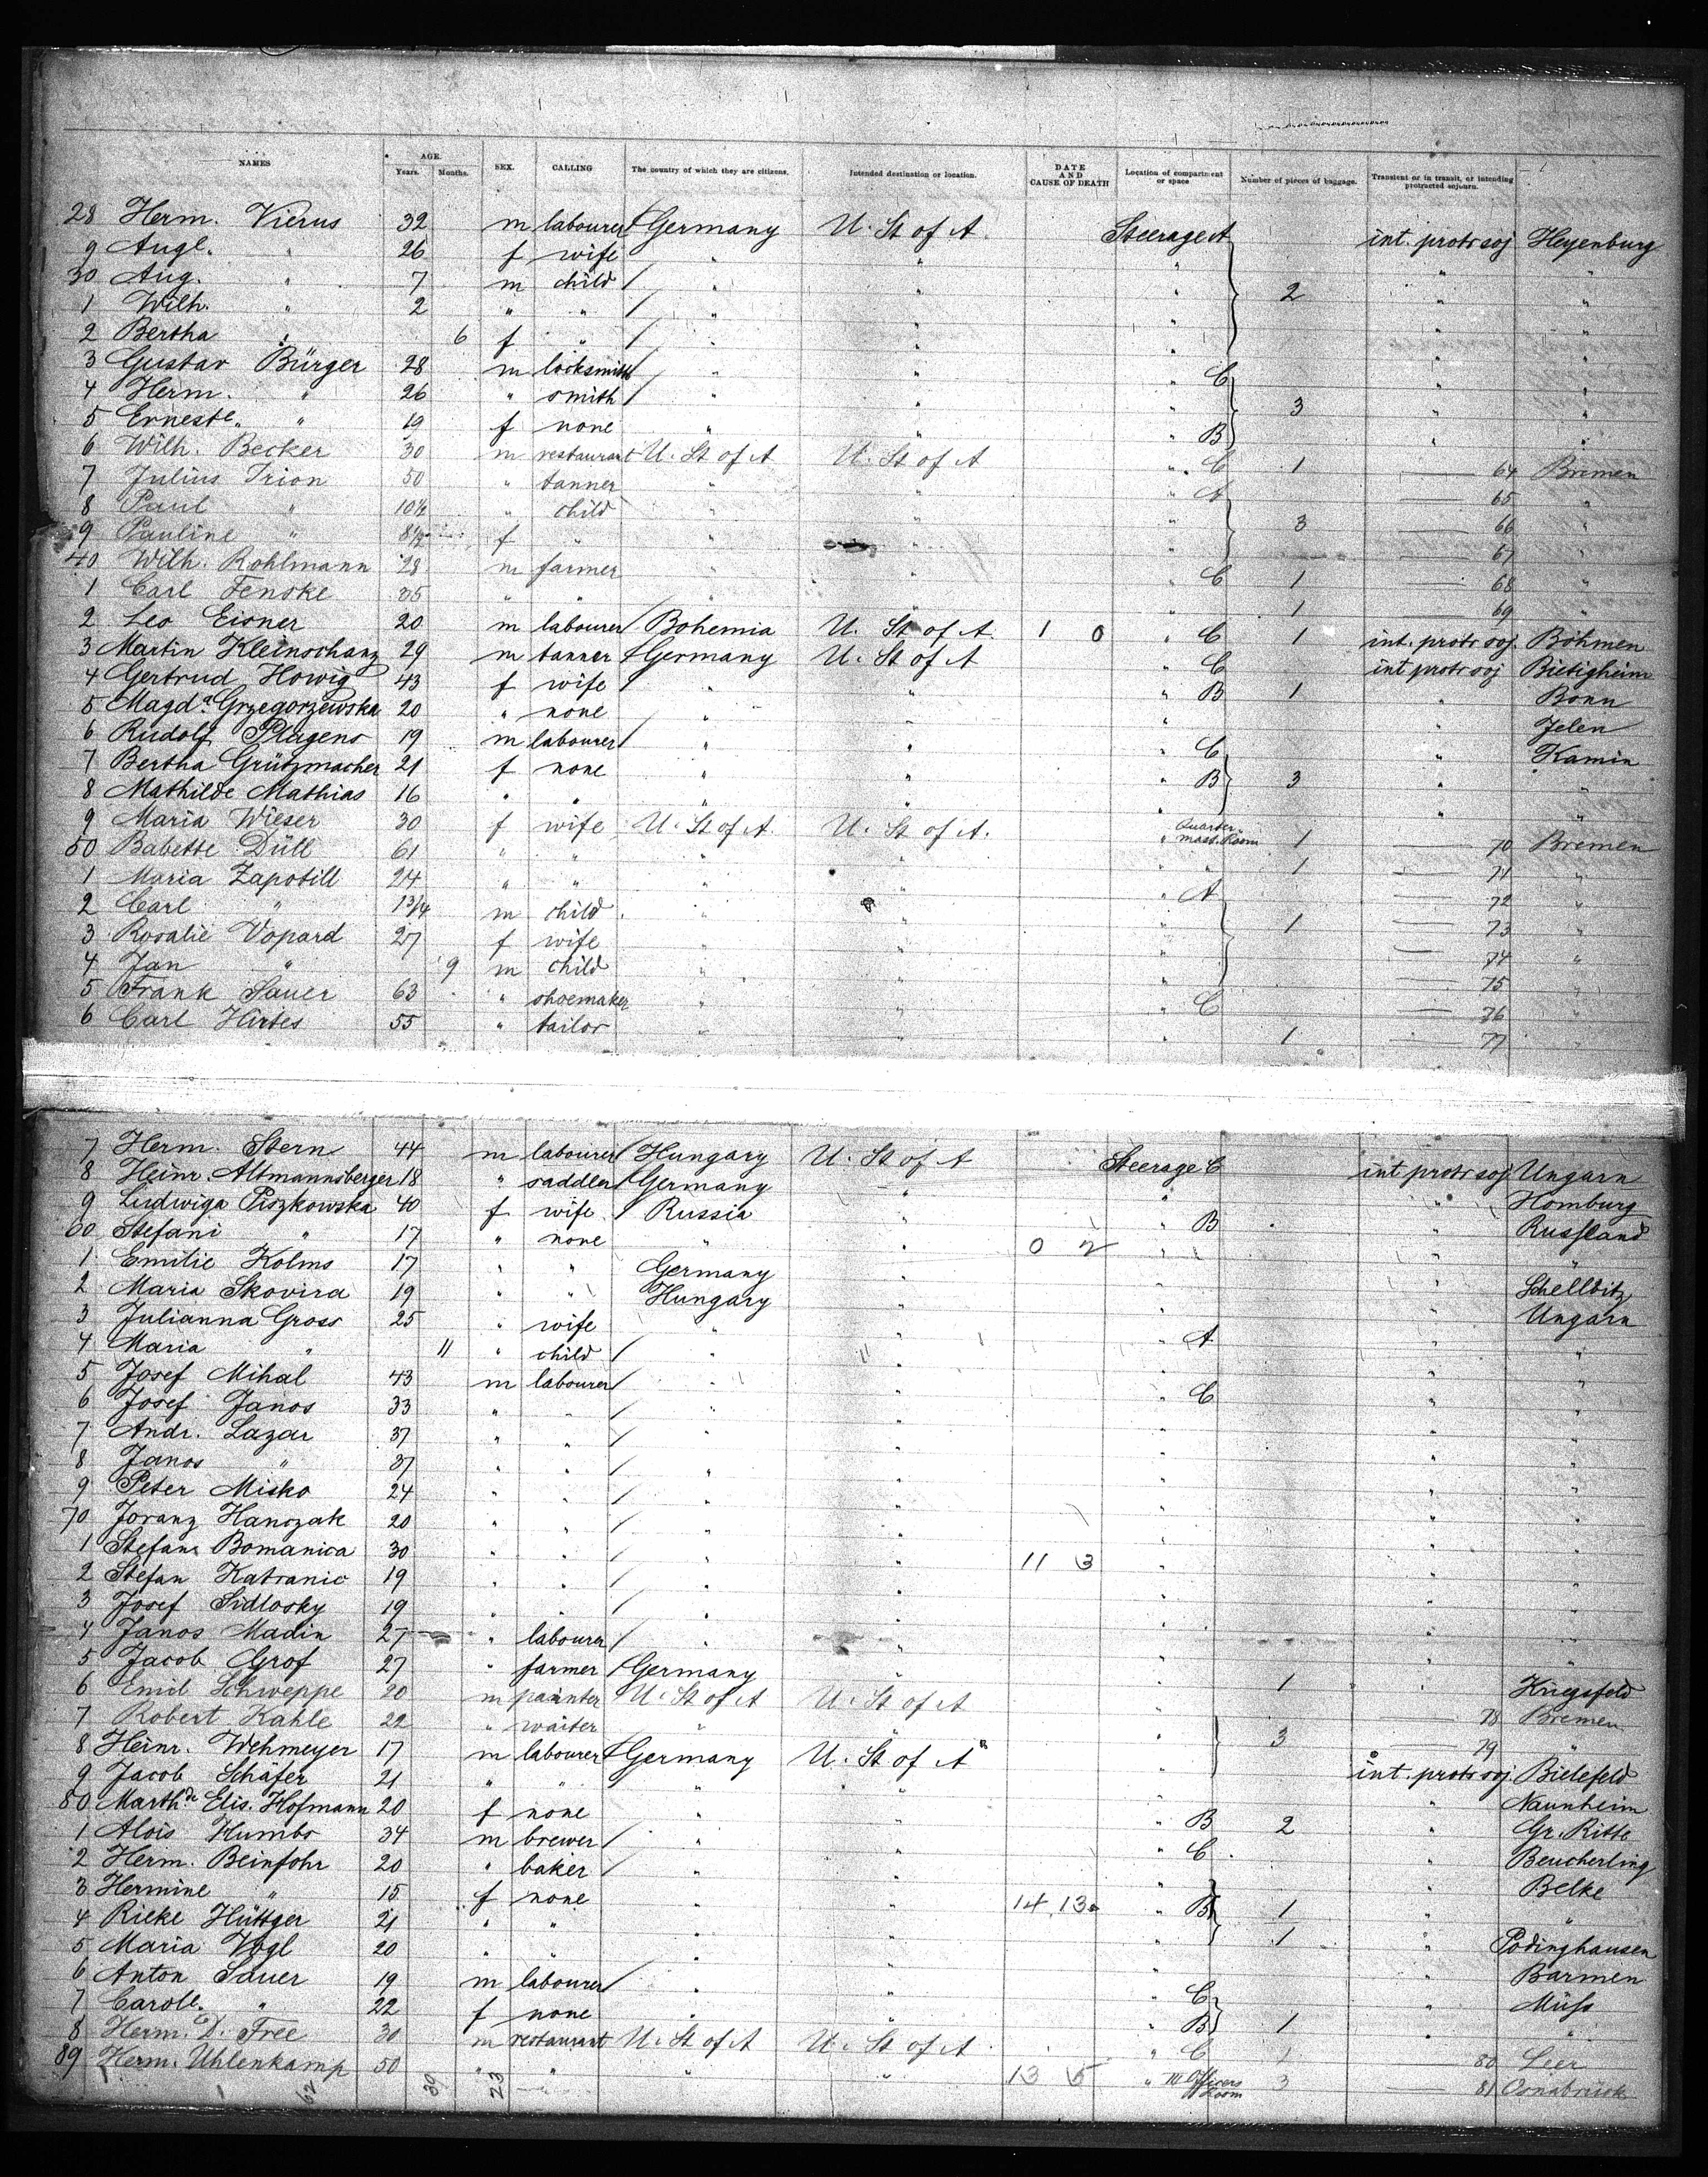 NAMES AGE. Years. Months. SEX. CALLING The country of which they are citizens. Intended destination or location. DATE AND CAUSE OF DEATH Location of compartment or space Number of pieces of baggage. Transient or in transit, or intending protracted sojourn.
28 Herm. Vierus 32 m labourer Germany U. St of A. Steerage A int. protr soj Heyenburg
9 Augl. " 26 f wife " " " " "
30 Aug. " 7 m child " " " 2 " "
1 Wilh. " 2 " " " " " " "
2 Bertha " 6 f " " " " " "
3 Gustav Bürger 28 m locksmith " " " C " "
4 Herm. " 26 " smith " " " 3 " "
5 Ernestl. " 19 f none " " " B " "
6 Wilh. Becker 30 m restaurant U. St of A U. St of A " C 1 — 64 Bremen
7 Julius Trion 50 " tanner " " " A — 65 "
8 Paul " 10½ " child " " " 3 — 66 "
9 Pauline " 8½ f " " " " — 67 "
40 Wilh. Rohlmann 28 m farmer " " " C 1 — 68 "
1 Carl Fenske 35 " " " " " 1 — 69 "
2 Leo Eisner 20 m labourer Bohemia U. St of A. 1 0 " C 1 int. protr soj. Böhmen
3 Martin Kleinschanz 29 m tanner Germany U. St of A " C int protr soj Bietigheim
4 Gertrud Howig 43 f wife " " " B 1 " Bonn
5 Magda. Grzegorzewska 20 " none " " " " Jelen
6 Rudolf Plagens 19 m labourer " " " C " Kamin
7 Bertha Grützmacher 21 f none " " " B 3 " "
8 Mathilde Mathias 16 " " " " " " "
9 Maria Wieser 30 f wife U. St of A. U. St of A. " Quarter-mast. Room 1 — 70 Bremen
50 Babette Düll 61 " " " " " 1 — 71 "
1 Maria Zapotill 24 " " " " " A — 72 "
2 Carl " 1¾ m child " " " 1 — 73 "
3 Rosalie Vopard 27 f wife " " " — 74 "
4 Jan " 9 m child " " " — 75 "
5 Frank Sauer 63 " shoemaker " " " C — 76 "
6 Carl Hirtes 55 " tailor " " 1 — 77 "
7 Herm. Stern 44 m labourer Hungary U. St of A Steerage C int protr soj Ungarn
8 Heinr. Altmannsberger 18 " saddler Germany " " " Homburg
9 Ludwiga Piszkowska 40 f wife Russia " " B " Russland
60 Stefani " 17 " none " " 0 2 " " " "
1 Emilie Kolms 17 " " Germany " " " Schellbitz
2 Maria Skovira 19 " " Hungary " " " Ungarn
3 Julianna Gross 25 " wife " " " A " "
4 Maria " 11 " child " " " " "
5 Josef Mihal 43 m labourer " " " C " "
6 Josef Janos 33 " " " " " " "
7 Andr. Lazar 37 " " " " " " "
8 Janos " 37 " " " " " " "
9 Peter Misko 24 " " " " " " "
70 Joranz Hanczak 20 " " " " " " "
1 Stefan Bomanica 30 " " " " 11 3 " " "
2 Stefan Katranic 19 " " " " " " "
3 Josef Sidlosky 19 " " " " " " "
4 Janos Madin 27 " labourer " " " " "
5 Jacob Grof 27 " farmer Germany " " 1 " Kriegsfeld
6 Emil Schweppe 20 m painter U. St of A U. St of A " — 78 Bremen
7 Robert Kahle 22 " waiter " " " 3 — 79 "
8 Heinr. Wehmeyer 17 m labourer Germany U. St of A " int. protr soj. Bielefeld
9 Jacob Schäfer 21 " " " " " " Naunheim
80 Marthde Elis. Hofmann 20 f none " " " B 2 " Gr. Ritte
1 Alois Kumbs 34 m brewer " " " C " Beucherling
2 Herm. Beinfohr 20 " baker " " " " Belke
3 Hermine " 15 f none " " 14 13 " B 1 " "
4 Rieke Hüttger 21 " " " " " 1 " Podinghausen
5 Maria Vogl 20 " " " " " " Barmen
6 Anton Sauer 19 m labourer " " " C " Müss
7 Caroll. " 22 f none " " " B 1 " "
8 Herm. D. Free 30 m restaurant U. St of A U. St of A " C 1 — 80 Leer
89 Herm. Uhlenkamp 50 " " " " 13 5 " III Officers Room 3 — 81 Osnabrück
62 39 23